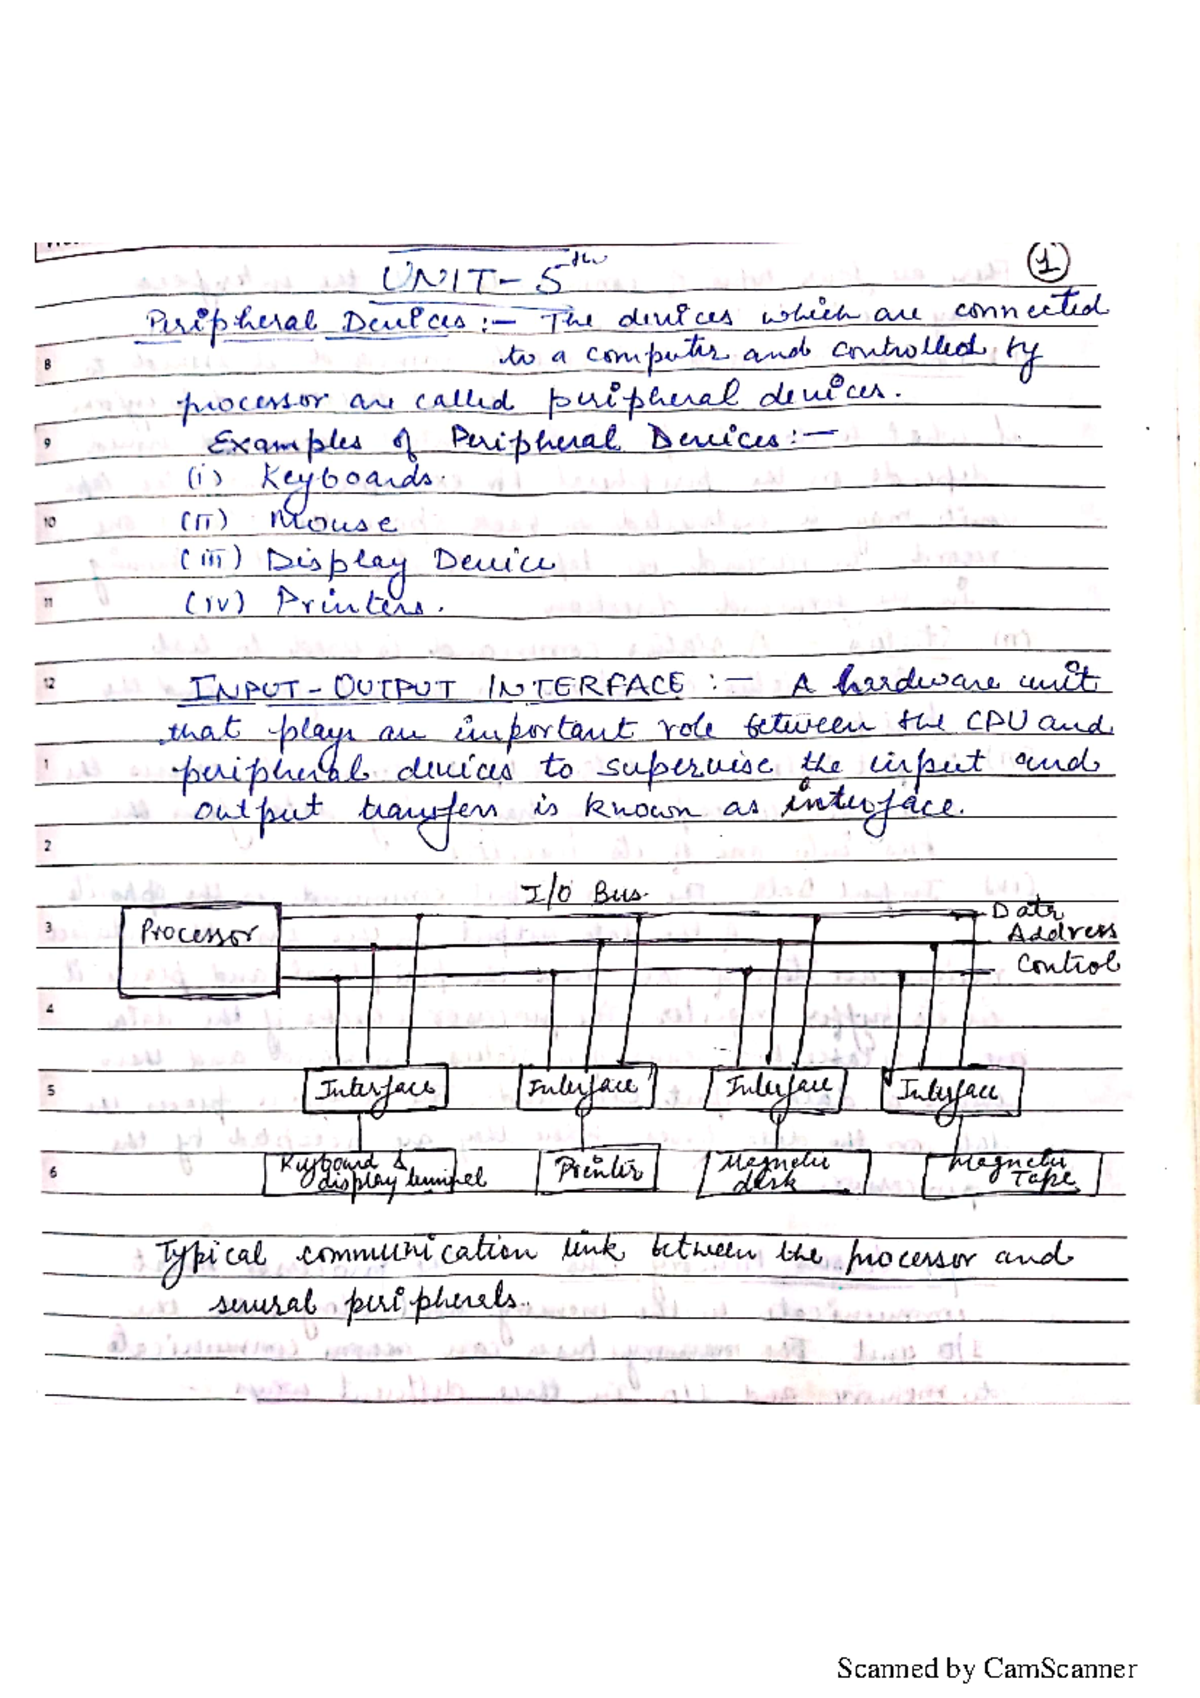 1
UNIT-5th
Peripheral Devices :- The devices which are connected
8
to a computer and controlled by
processor are called peripheral devices.
9
Examples of Peripheral Devices :-
(i) Keyboards.
10
(ii) Mouse
(iii) Display Device
11
(iv) Printers.
12
INPUT-OUTPUT INTERFACE :- A hardware unit
that plays an important role between the CPU and
1
peripheral devices to supervise the input and
output transfers is known as interface.
2
I/O Bus
3
Processor
Data
Address
Control
4
5
Interface Interface Interface Interface
6
Keyboard & display terminal
Printer
Magnetic disk
Magnetic Tape
Typical communication link between the processor and
several peripherals.
Scanned by CamScanner